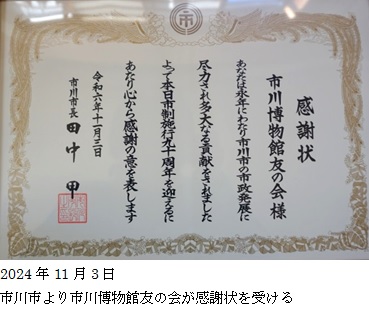 感謝状
市川博物館友の会様
あなたは永年にわたり市川市の市政発展に
尽力され多大なる貢献をされました
よって本日市制施行九十周年を迎えるに
あたり心から感謝の意を表します
令和六年十一月三日
市川市長 田中甲
2024年11月3日
市川市より市川博物館友の会が感謝状を受ける